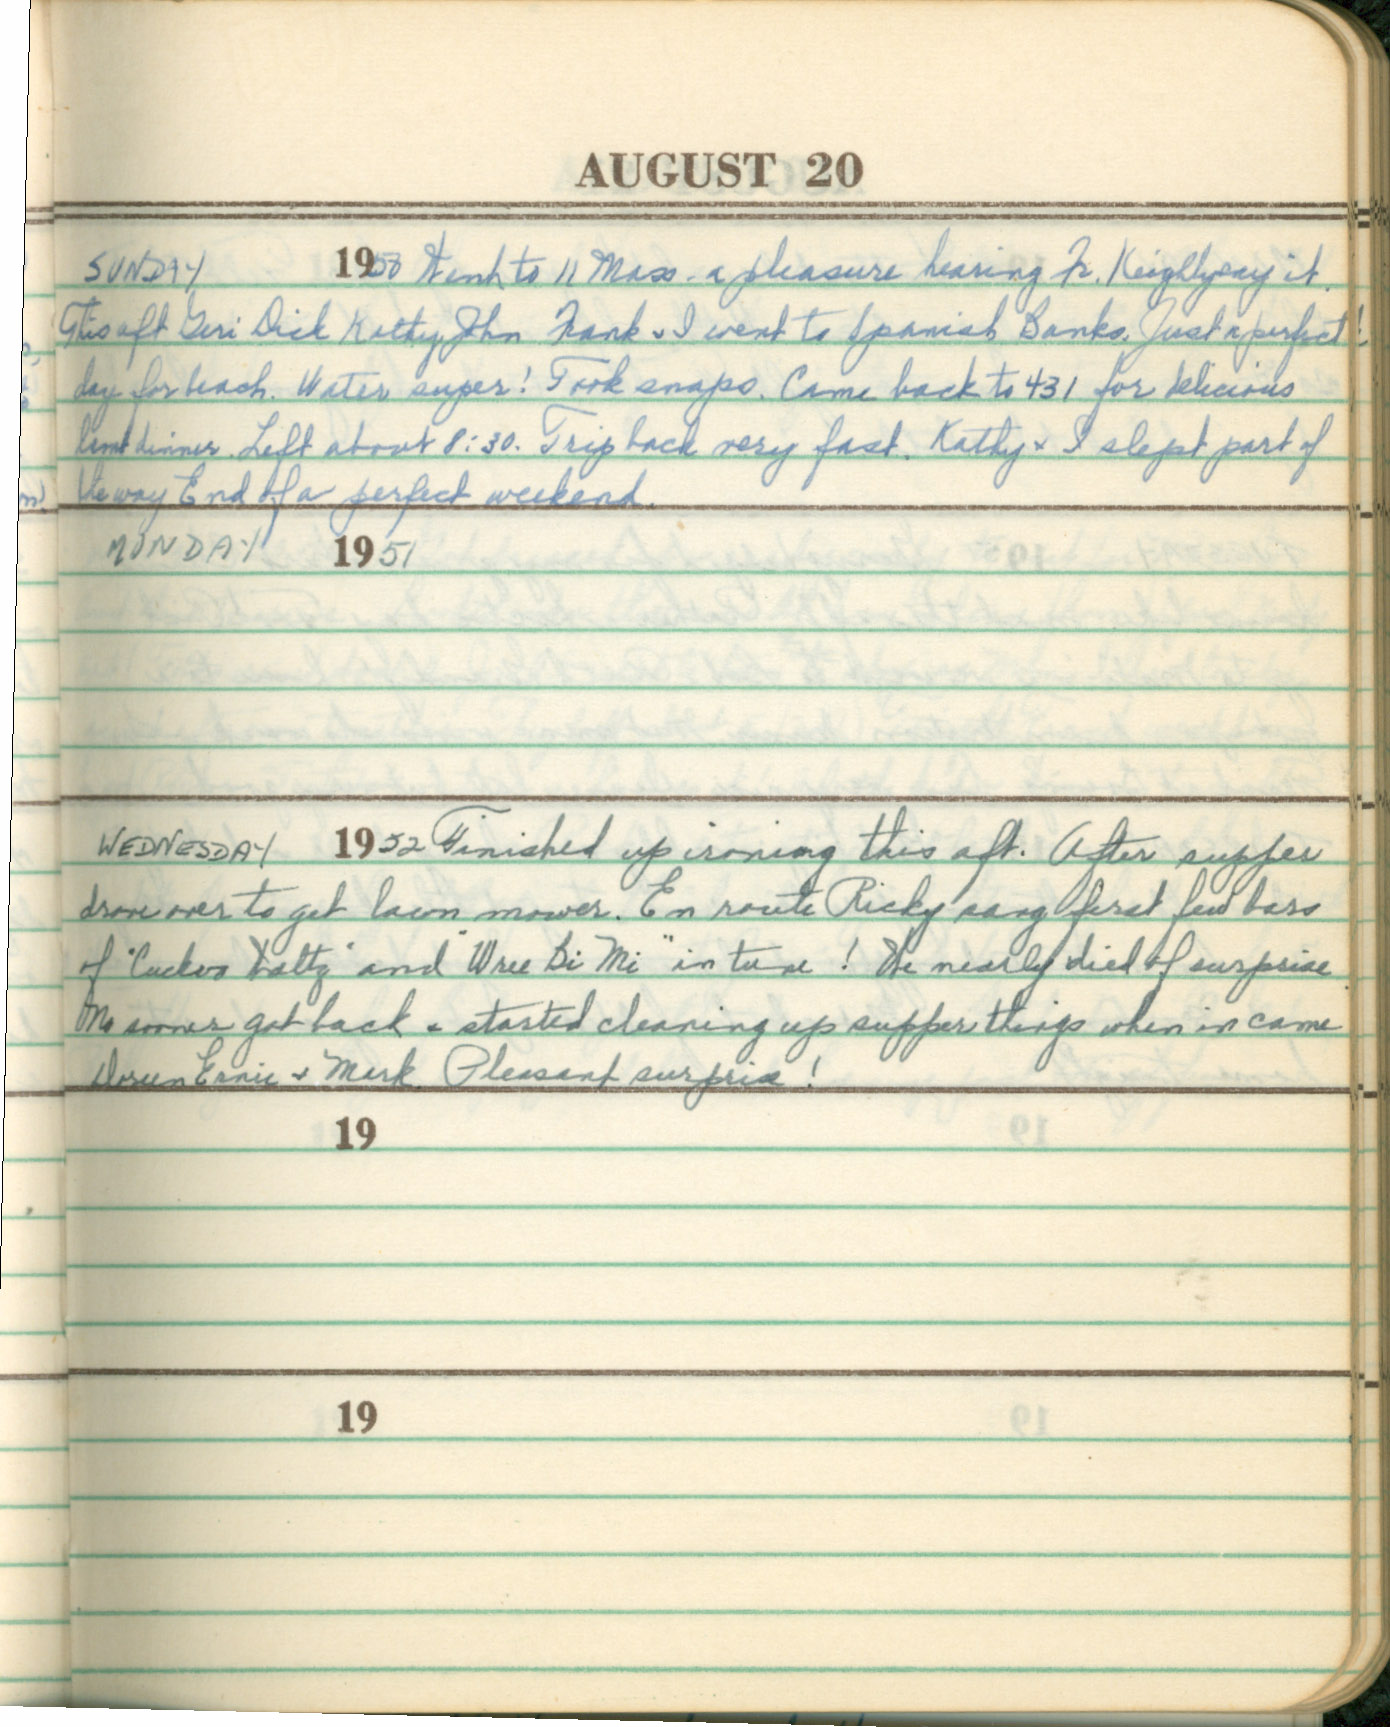 AUGUST 20
SUNDAY 1950 Went to 11 Mass. a pleasure hearing Fr. Keighly say it.
This aft Geri Dick Kathy John Frank & I went to Spanish Banks. Just a perfect!
day for beach. Water super! Took snaps. Came back to 431 for delicious
dinner. Left about 8:30. Trip back very fast. Kathy & I slept part of
the way End of a perfect weekend.
MONDAY 1951
WEDNESDAY 1952 Finished up ironing this aft. After supper
drove over to get lawn mower. En route Ricky sang first few bars
of "Cuckoo Waltz" and "Wree Bi Mi" in tune! We nearly died of surprise.
No sooner got back & started cleaning up supper things when in came
Doreen Ernie & Mark. Pleasant surprise!
19
19